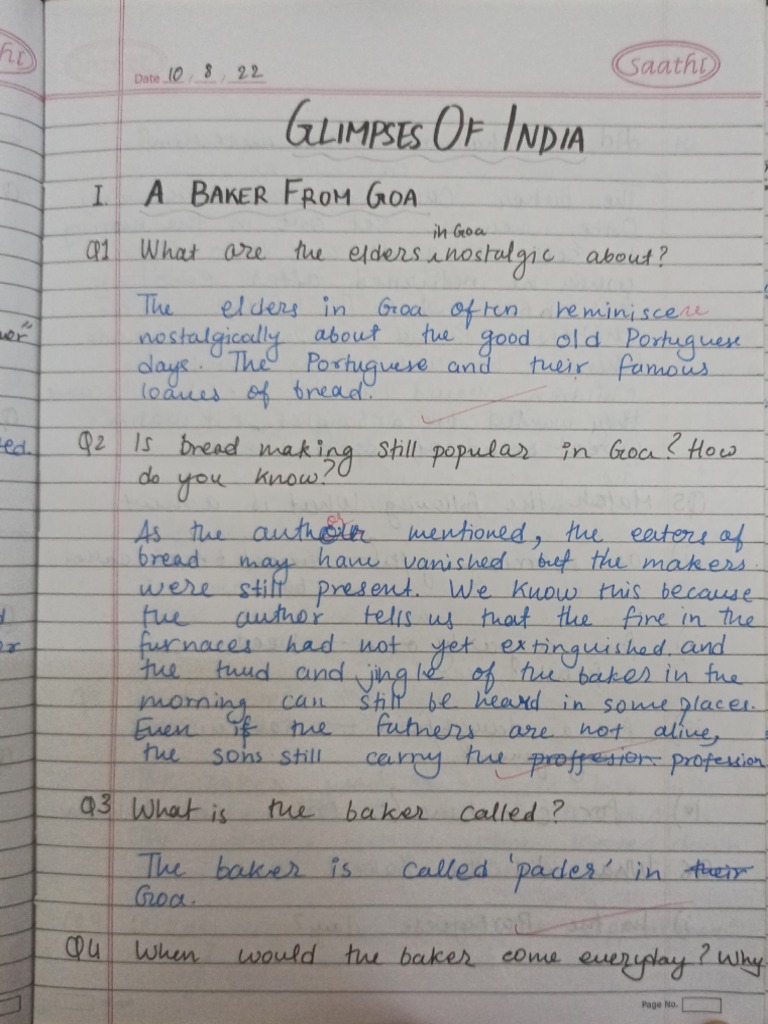 Saathi
Date 10, 8, 22
GLIMPSES OF INDIA
I. A BAKER FROM GOA
in Goa
Q1 What are the elders nostalgic about?
The elders in Goa often reminiscere
nostalgically about the good old Portuguese
days. The Portuguese and their famous
loaves of bread.
Q2 Is bread making still popular in Goa? How
do you know?
As the author mentioned, the eaters of
bread may have vanished but the makers
were still present. We know this because
the author tells us that the fire in the
furnaces had not yet extinguished, and
the thud and jingle of the baker in the
morning can still be heard in some places.
Even if the fathers are not alive,
the sons still carry the proffesion profession
Q3 What is the baker called?
The baker is called 'pader' in their
Goa.
Q4 When would the baker come everyday? Why
Page No.